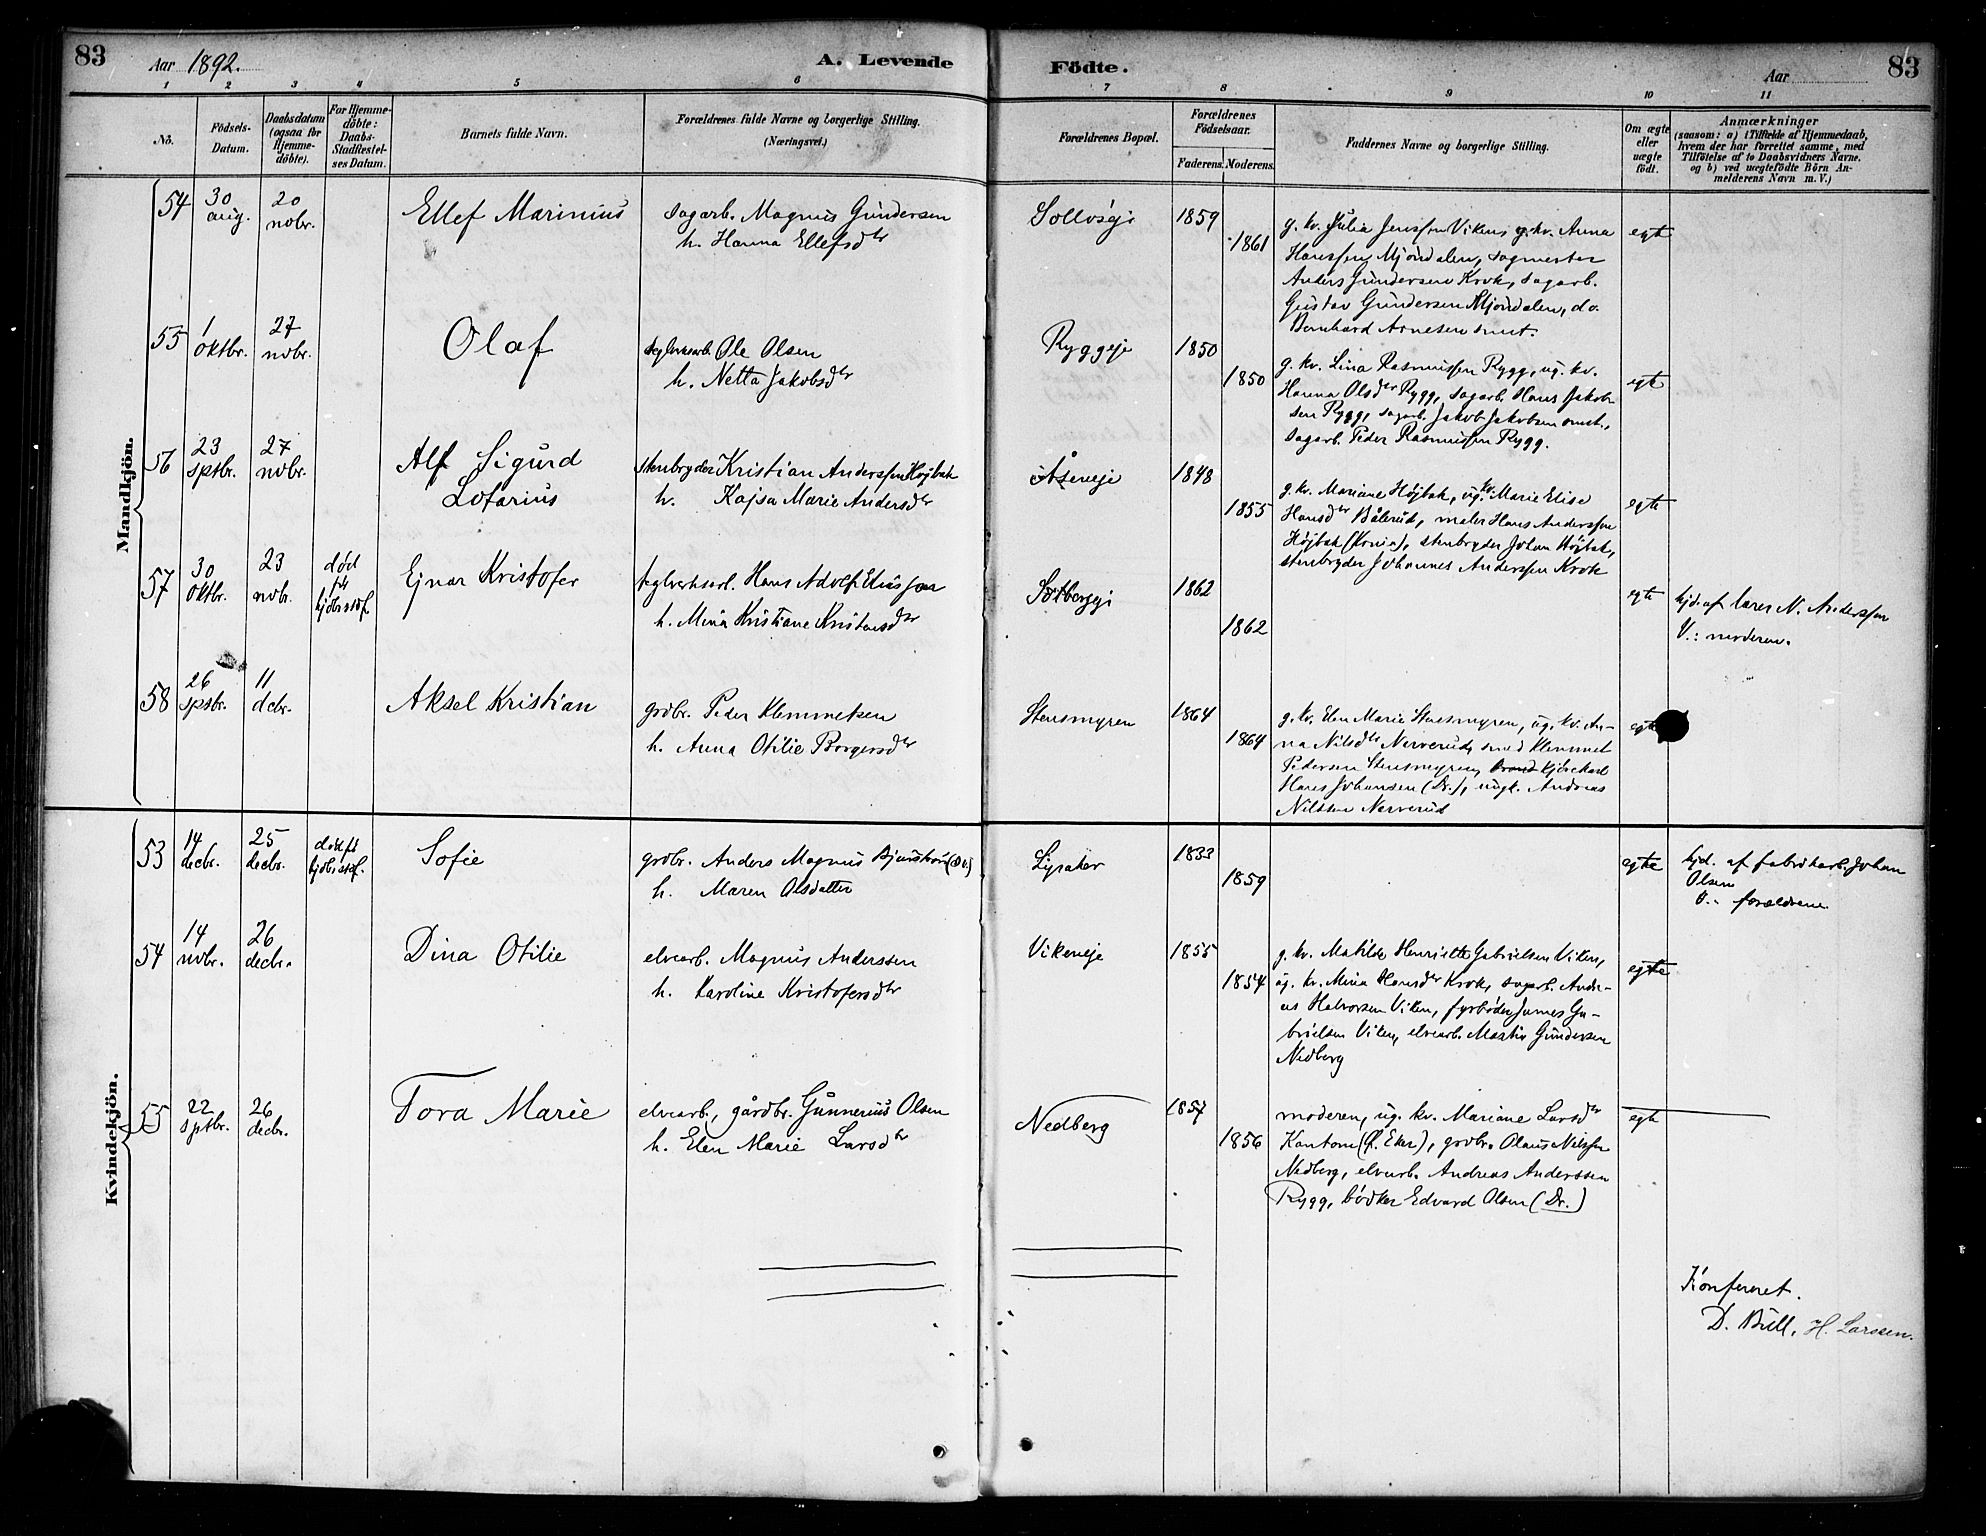 83
Aar 1892.
A. Levende
Födte.
Aar
83
1 2 3 4 5 6 7 8 9 10 11
No.
Födsels-Datum.
Daabsdatum (ogsaa for Hjemme-döbte).
For Hjemme-döbte: Daabs-Stadfæstel-ses Datum.
Barnets fulde Navn.
Forældrenes fulde Navne og borgerlige Stilling.
(Næringsvei.)
Forældrenes Bopæl.
Forældrenes Födselsaar.
Faderens. Moderens.
Faddernes Navne og borgerlige Stilling.
Om ægte eller uægte födt.
Anmærkninger
(saasom: a) i Tilfælde af Hjemmedaab,
hvem der har forrettet samme, med
Tilföielse af to Daabsvidners Navne.
og b) ved uægtefödte Börn An-
melderens Navn m. V.)
Mandkjön.
54 30 aug. 20 nobr. Ellef Marinius
sagarb. Magnus Gundersen
h. Hanna Ellefsdtr
Sollvseje 1859 1861
g. kv. Julia Jenssen Viken, g. kv. Anna
Hanssen Mjöndalen, sagmester
Anders Gundersen Krok, sagarb.
Gustav Gundersen Mjöndalen, do.
Bernhard Arnesen smst.
egte
55 1 oktbr. 27 nobr. Olaf
teglverksarb. Ole Olsen
h. Netta Jakobsdtr
Ryggeje 1850 1850
g. kv. Lina Rasmussen Rygg, ug. kv.
Hanna Olsdtr Rygg, sagarb. Hans Jakob-
sen Rygg, sagarb. Jakob Jakobsen smst.,
sagarb. Peder Rasmussen Rygg.
egte
56 23 sptbr. 27 nobr. Alf Sigurd
Lotarius
stenbryder Kristian Anderssen Höjbak
h. Kajsa Marie Andersdtr
Åseneje 1848 1855
g. kv. Mariane Höjbak, ug. kv. Marie Elise
Hansdtr Bålerud, maler Hans Anderssen
Höjbak (Krnia), stenbryder Johan Höjbak,
stenbryder Johannes Anderssen Krok
egte
57 30 oktbr. 23 nobr. död før kjbrsstf.
Ejnar Kristofer
teglverksarb. Hans Adolf Eliassen
h. Mina Kristiane Kristensdtr
Solbergeje 1862 1862
egte
hjd. af lærer N. Anderssen
V.: moderen.
58 26 spsbr. 11 dcbr. Aksel Kristian
grdbr. Peder Klemmetsen
h. Anna Otilie Borgersdtr
Stensmyren 1864 1864
g. kv. Elen Marie Stensmyren, ug. kv. An-
na Nilsdtr Nerverud, smed Klemmet
Pedersen Stensmyren, kjörekarl
Hans Johansen (Dr.), ungk. Andreas
Nilssen Nerverud
egte
Kvindekjön.
53 14 decbr. 25 decbr. död før kjbrsstf.
Sofie
grdbr. Anders Magnus Bjurström (Sv.)
h. Maren Olsdatter
Lysaker 1833 1859
egte
hjd. af fabrikarb. Johan
Olsen
V.: forældrene.
54 14 nobr. 26 decbr. Dina Otilie
elvearb. Magnus Anderssen
h. Karoline Kristofersdtr
Vikeneje 1855 1854
g. kv. Matilde Henriette Gabrielsen Viken,
ug. kv. Mina Hansdtr Krok, sagarb. Andre-
as Halvorsen Viken, fyrböder James Ga-
brielsen Viken, elvearb. Martin Gundersen
Nedberg
egte
55 22 sptbr. 26 decbr. Tora Marie
elvearb., gårdbr. Gunnerius Olsen
h. Elen Marie Larsdtr
Nedberg 1857 1856
moderen, ug. kv. Mariane Larsdtr
Kantom (Ö. Eker), grdbr. Olaus Nilssen
Nedberg, elvearb. Andreas Anderssen
Rygg, bödker Edvard Olsen (Dr.)
egte
Konfereret.
D. Bull. H. Larssen.